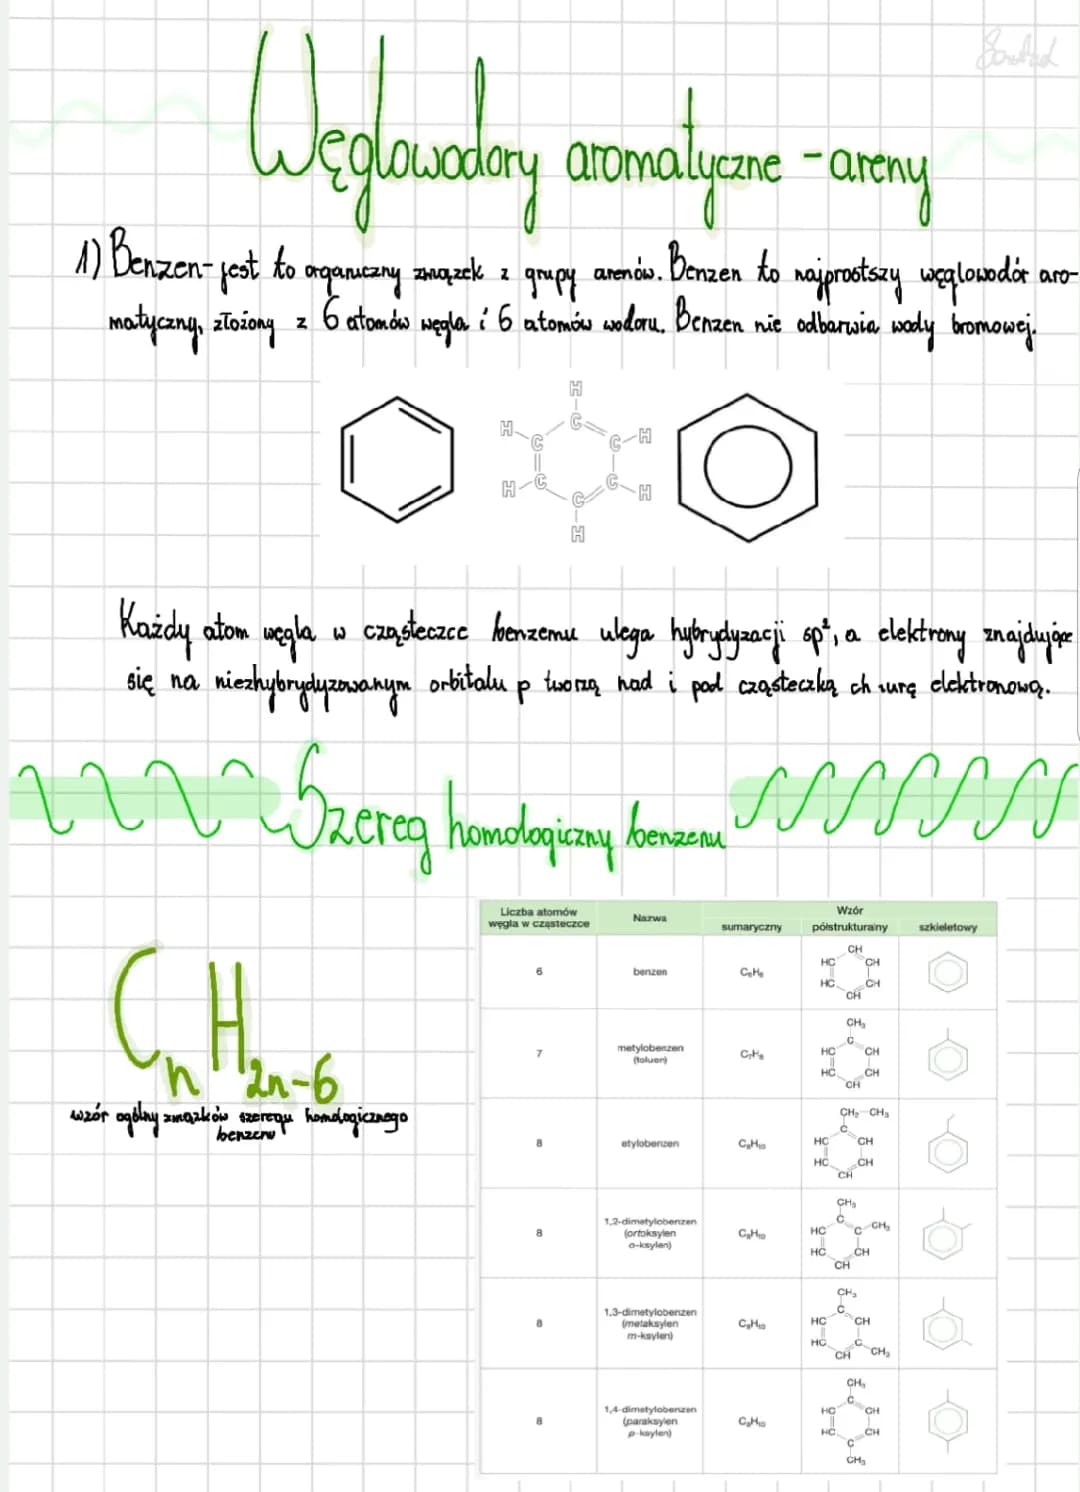 Węglowodory aromatyczne - areny
1) Benzen - jest to organiczny związek z grupy arenów. Benzen to najprostszy węglowodór aro-
matyczny, złożony z 6 atomów węgla i 6 atomów wodoru. Benzen nie odbarwia wody bromowej.
H
H C C H
H C C H
C
H
Każdy atom węgla w cząsteczce benzemu ulega hybrydyzacji sp², a elektrony znajdujące
się na niezhybrydyzowanym orbitalu p tworzą nad i pod cząsteczką chmurę elektronową.
Szereg homologiczny benzenu
CₙH₂ₙ₋₆
wzór ogólny związków szeregu homologicznego
benzenu
Liczba atomów węgla w cząsteczce Nazwa Wzór
sumaryczny półstrukturalny szkieletowy
6 benzen C₆H₆
CH
HC CH
HC CH
CH
7 metylobenzen (toluen) C₇H₈
CH₃
C
HC CH
HC CH
CH
8 etylobenzen C₈H₁₀
CH₂ CH₃
C
HC CH
HC CH
CH
8 1,2-dimetylobenzen (ortoksylen o-ksylen) C₈H₁₀
CH₃
C
HC C CH₃
HC CH
CH
8 1,3-dimetylobenzen (metaksylen m-ksylen) C₈H₁₀
CH₃
C
HC CH
HC C
CH CH₃
8 1,4-dimetylobenzen (paraksylen p-ksylen) C₈H₁₀
CH₃
C
HC CH
HC CH
C
CH₃